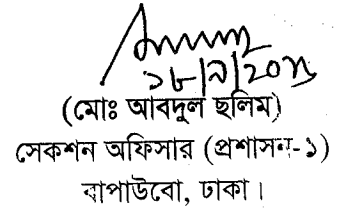 ১৮/৯/20১১
(মোঃ আবদুল ছলিম)
সেকশন অফিসার (প্রশাসন-১)
বাপাউবো, ঢাকা।